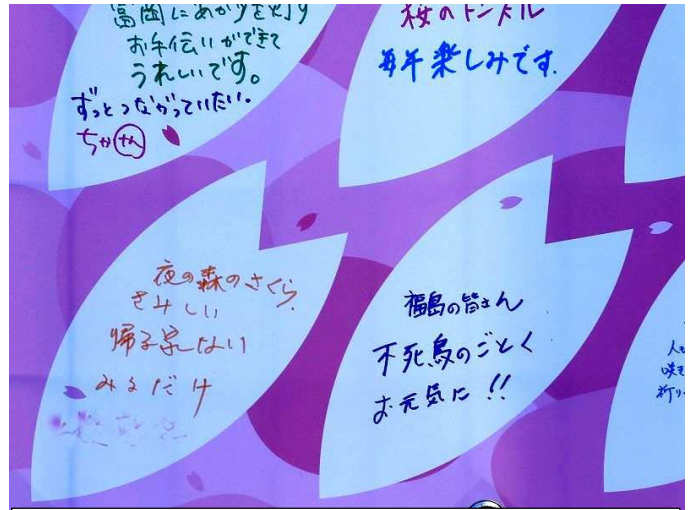 富岡にあかりを灯り
お手伝いができて
うれしいです。
ずっとつながっていたい。
ちかさん
桜のトンネル
毎年楽しみです.
夜の森のさくら
さみしい
帰る家しない
みるだけ
福島の皆さん
不死鳥のごとく
お元気に!!